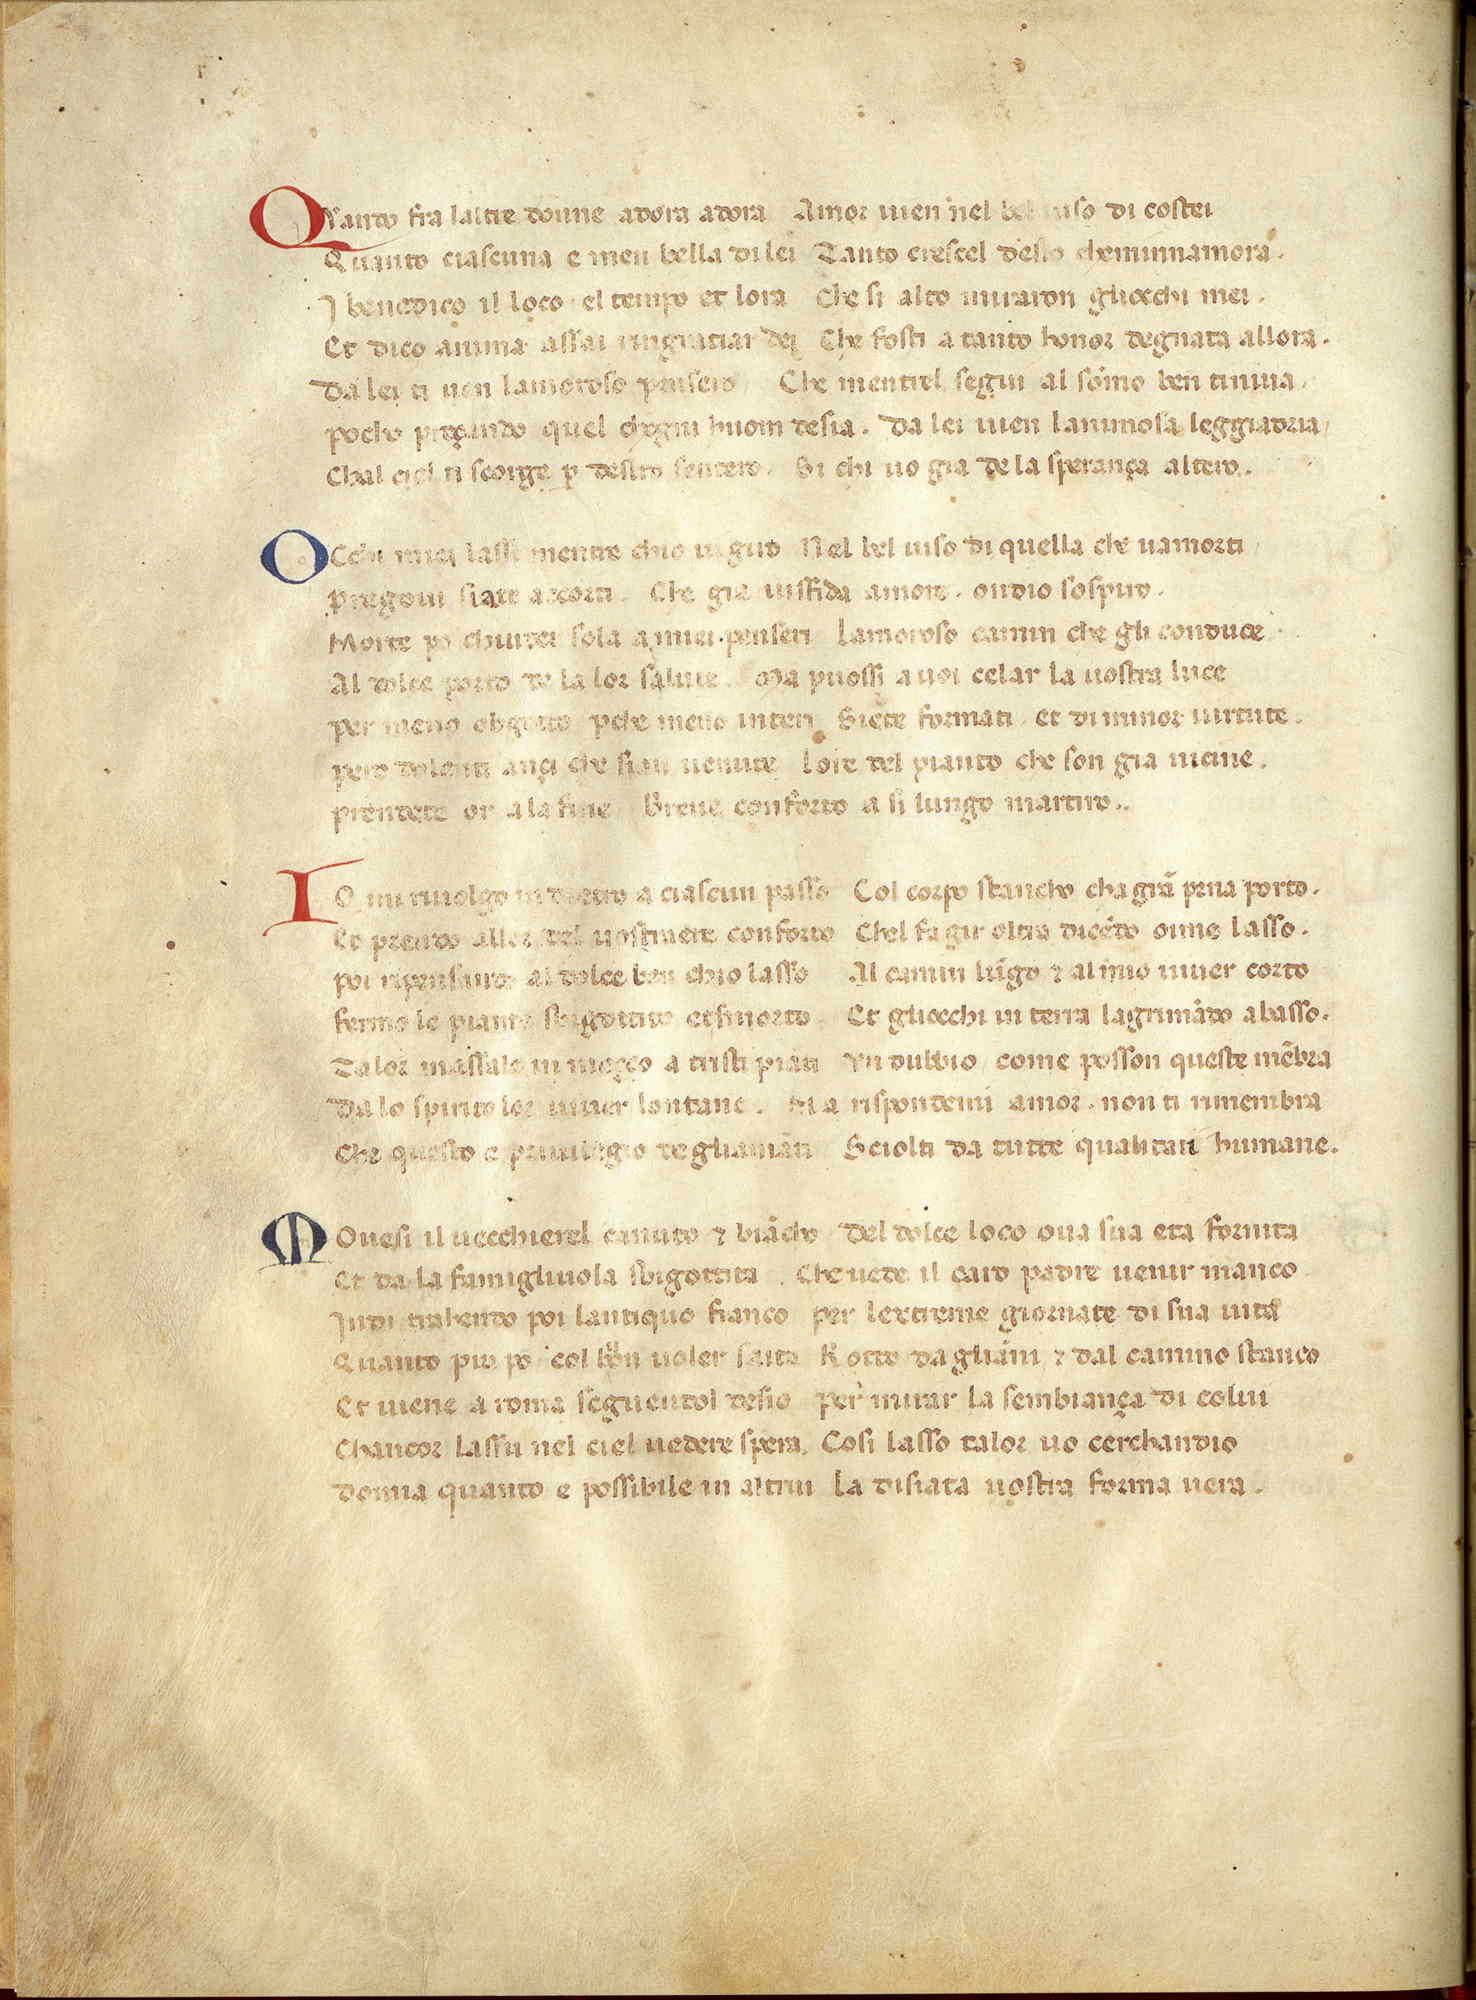 QVando fra laltre donne adora adora Amor uien nel bel uiso di costei
Quanto ciascuna e men bella di lei Tanto crescel desio cheminnamora.
I benedico il loco el tempo et lora Che si alto miraron gliocchi mei.
Et dico anima assai ringratiar dei Che fosti a tanto honor degnata allora.
Da lei ti uen lamoroso pensero Che mentrel segui al sōmo ben tinuia.
pocho preçando quel chogni huom desia. Da lei uien lanimosa leggiadria
Chal ciel ti scorge ꝑ destro sentero. Si chi uo gia de la sperança altero.
OCchi miei lassi mentre chio ui giro Nel bel uiso di quella che uamorti
pregoui siate accorti. Che gia uisfida amore. ondio sospiro.
Morte po chiuder sola a miei penseri lamoroso camin che gli conduce
Al dolce porto de la lor salute. Ma puossi a uoi celar la uostra luce
per meno obgetto ꝑche meno interi Siete formati. et di minor uirtute.
pero dolenti ançi che sian uenute lore del pianto che son gia uicine.
prendete or a la fine Breue conforto a si lungo martiro..
IO mi riuolgo in dietro a ciascun passo Col corpo stancho cha grā pena porto.
Et prendo allor del uostraere conforto Chel fa gir oltra dicēdo oime lasso.
poi ripensando al dolce ben chio lasso Al camin lūgo ⁊ al mio uiuer corto
fermo le piante sbigottito et smorto Et gliocchi in terra lagrimādo abasso.
Talor massale in meçço a tristi piāti Vn dubbio come posson queste mēbra
Da lo spirito lor uiuer lontane. Ma rispondemi amor. non ti rimembra
Che questo e priuilegio degliamāti Sciolti da tutte qualitati humane.
MOuesi il uecchierel canuto ⁊ biācho Del dolce loco oua sua eta fornita
Et da la famigliuola sbigottita. Che uede il caro padre uenir manco
Indi trahendo poi lantiquo fianco per lextreme giornate di sua uita
Quanto piu po col buon uoler saita Rotto dagliāni ⁊ dal camino stanco
Et uiene a roma seguendol desio per mirar la sembiança di colui
Chancor lassu nel ciel uedere spera. Cosi lasso talor uo cerchandio
Donna quanto e possibile in altrui la disiata uostra forma uera.